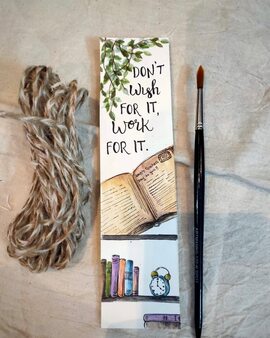 DON'T
Wish
FOR IT,
Work
FOR IT.